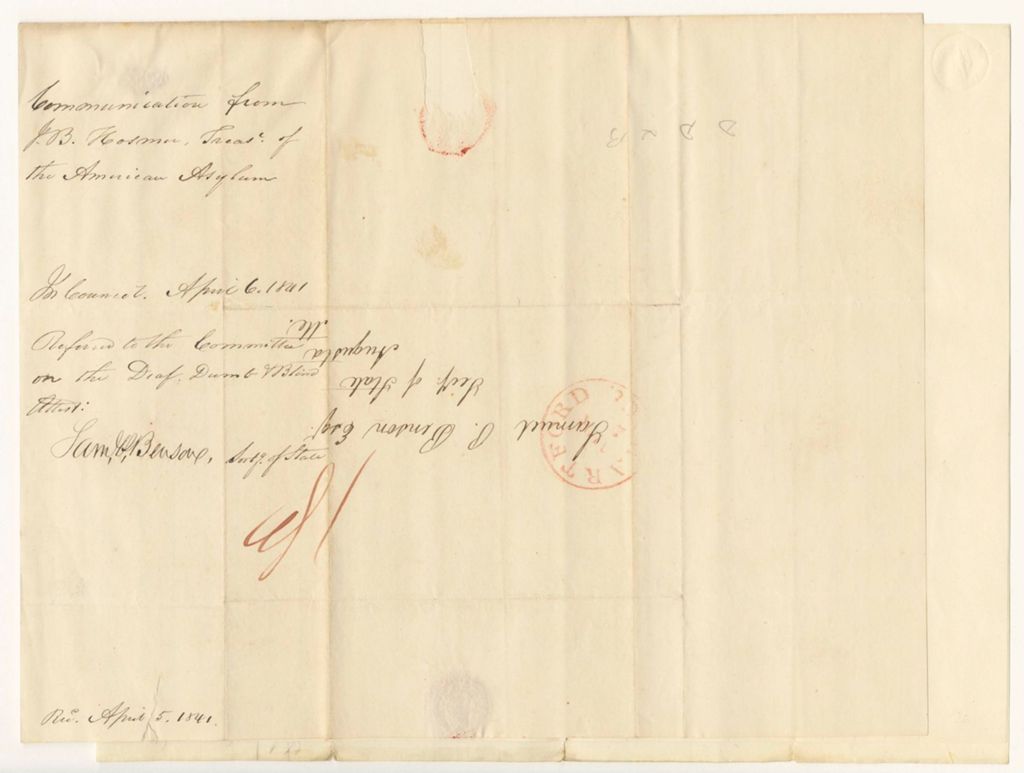 Communication from
J. B. Hosmer, Treasr. of
the American Asylum
In Council. April 6. 1841
Referred to the Committee
on the Deaf, Dumb & Blind
Attest:
Saml. P. Benson, Secy. of State
Rec. April 5. 1841.
Samuel P. Benson Esqr.
Secy. of State
Augusta
Me.
HARTFORD
D D & B